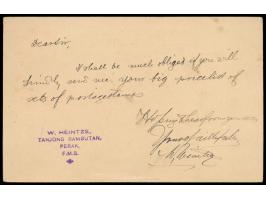 Dear Sir,
I shall be much obliged if you will
kindly send me your big pricelist of
sets of postagestamps
Yours faithfully
W. Heintze
W. HEINTZE,
TANJONG RAMBUTAN,
PERAK,
F.M.S.